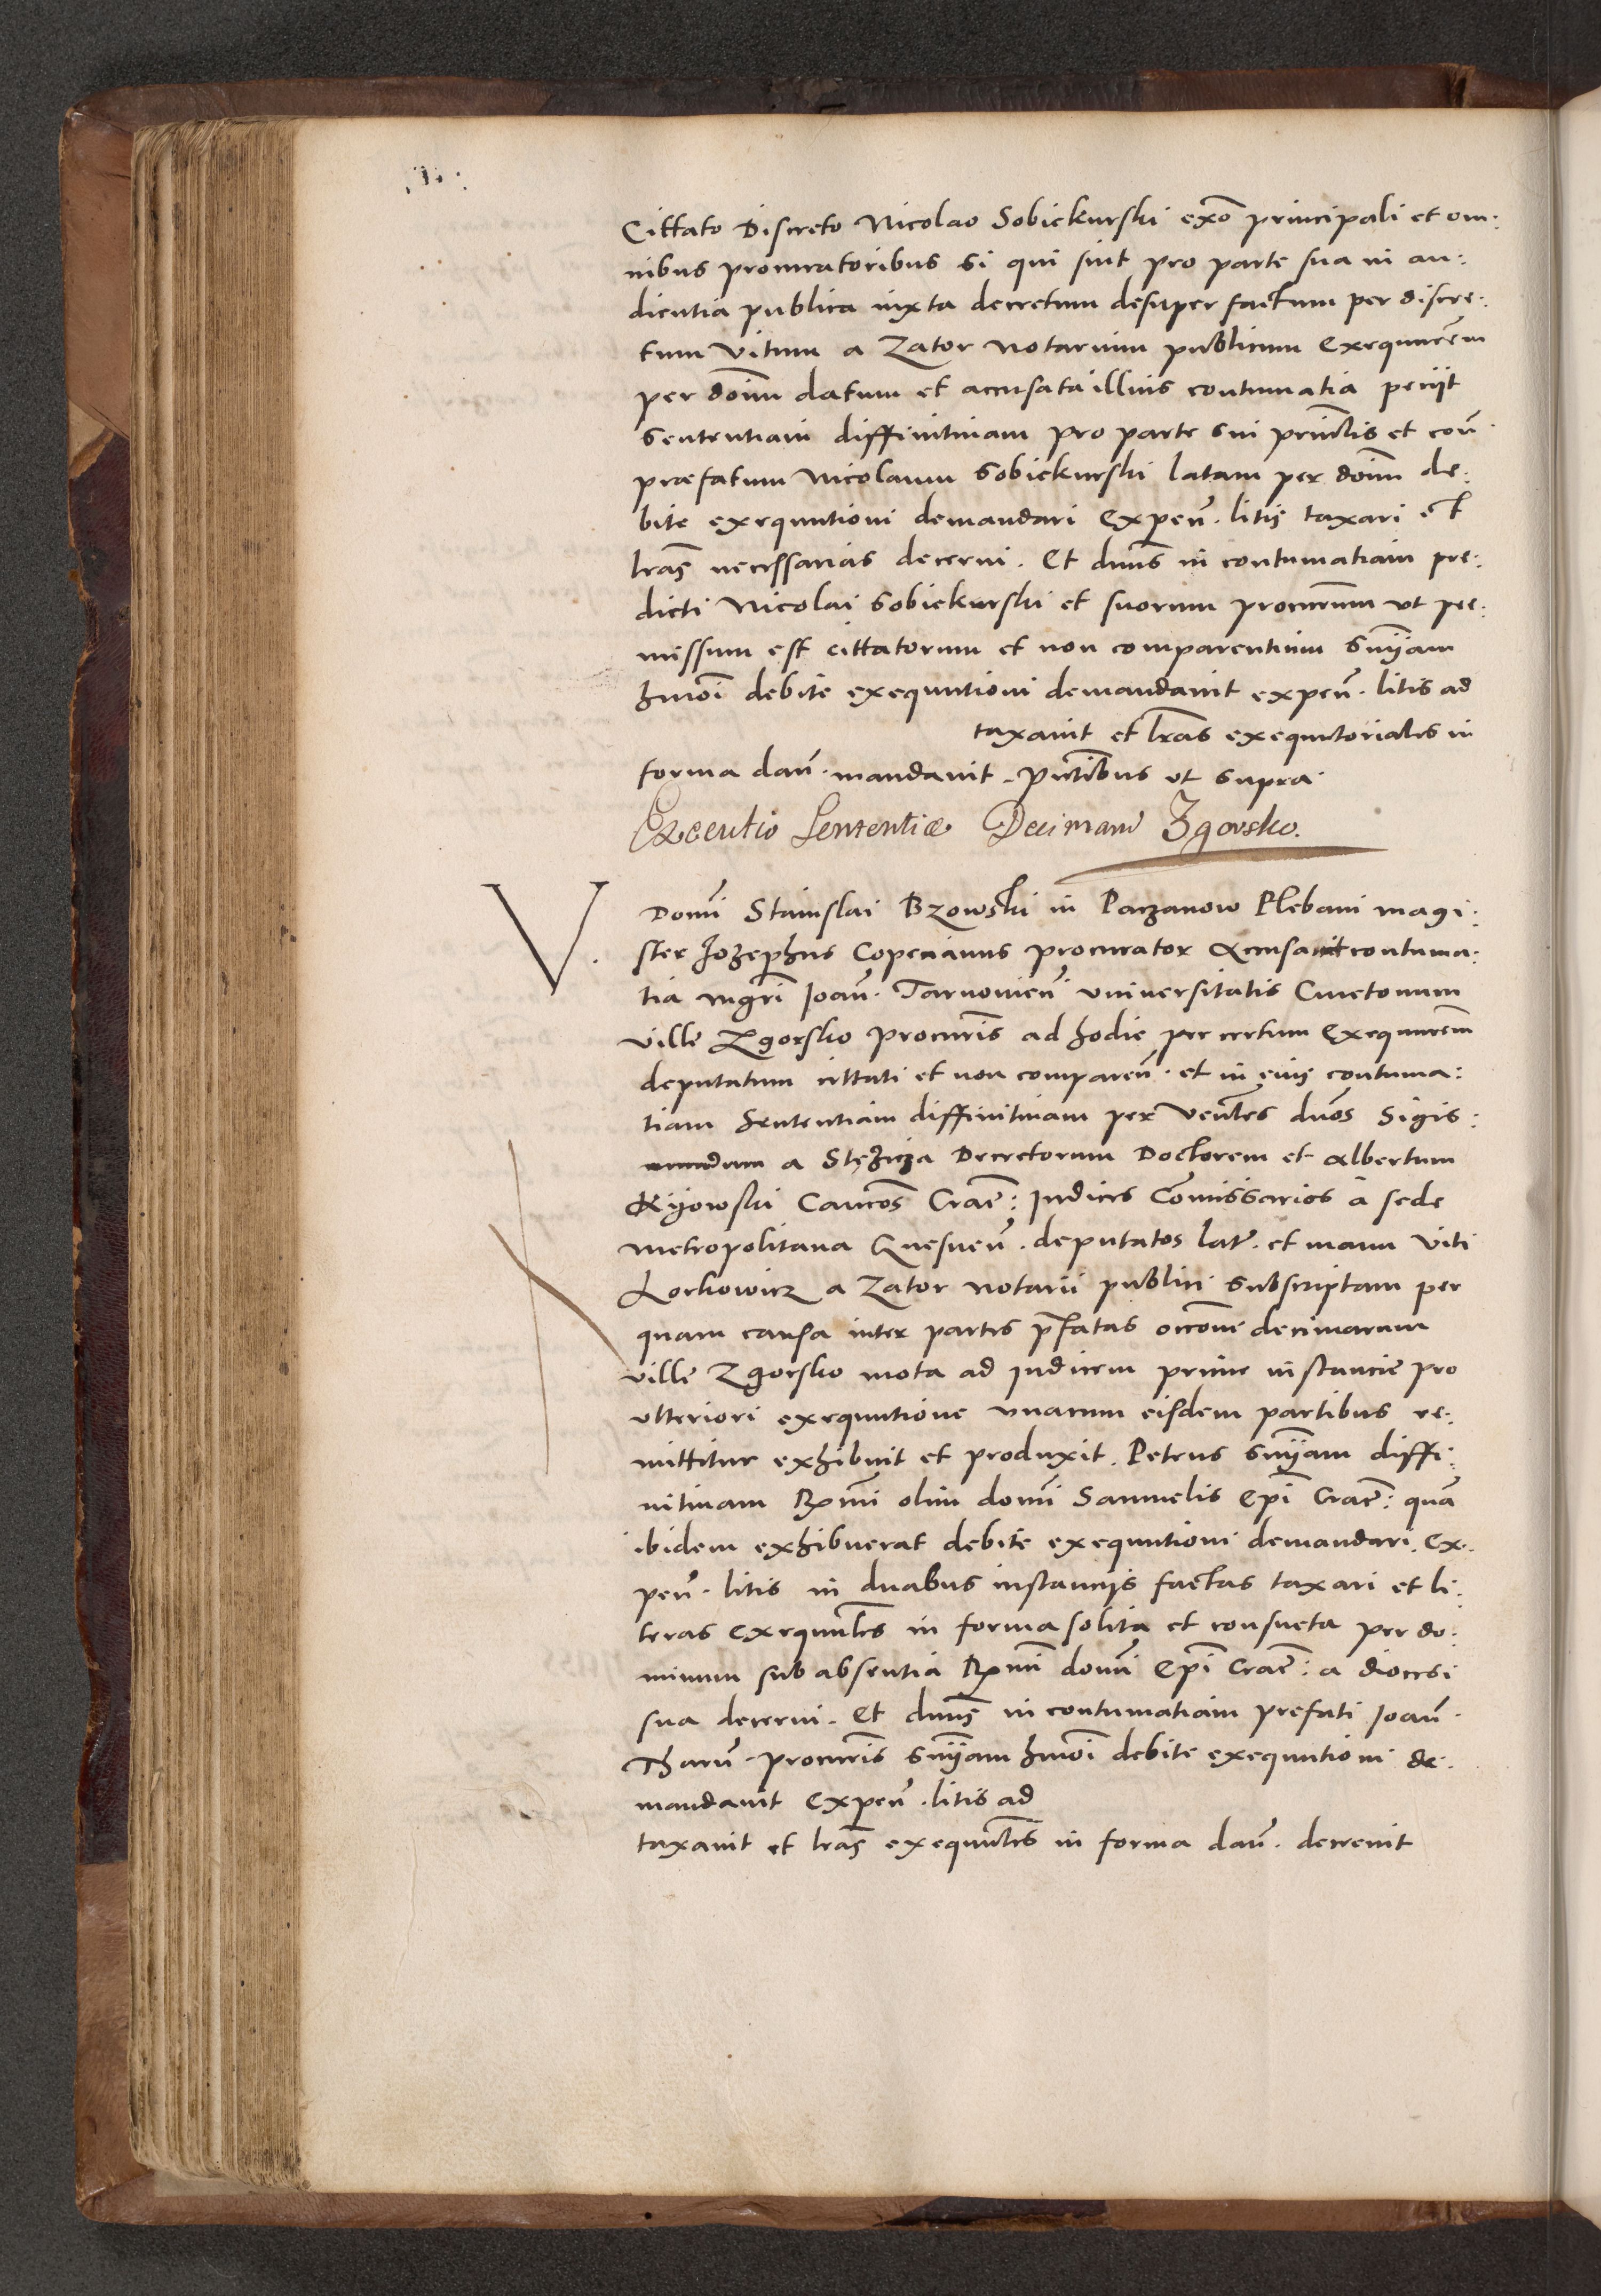 Cittato Discreto Nicolao Sobiekurski exõ principali et om:
nibus procuratoribus si qui sint pro parte sua in au:
dientia publica iuxta decretum desuper factum per discre:
tum Vitum a Zator notarium publicum Exequutẽm
per doñm datum et accusata illius contumatia petiit
Sententiam diffinitivam pro parte sui prinčlis et coñ
præfatum Nicolaum Sobiekurski latam per doñm de:
bite exequutioni demandari Expeñ. litis taxari et
lr̃as necessarias decerni. Et dnũs in contumatiam pre:
dicti Nicolai Sobiekurski et suorum procur̃um ut pre:
missum est cittatorum et non comparentium Sniĩam
hmõi debite exequutioni demandavit expeñ. litis ad
taxavit et lr̃as exequutoriales in
forma dañ. mandavit. Pñtibus ut supra.
Executio Sententiæ Decimarũ Zgorsko.
V. Domĩ Stanislai Bzowski in Paczanow Plebani magi:
ster Jozephus Copecianus procurator accusavit contuma:
tia mgr̃i Joañ. Tarnovieñ universitatis Cmetonum
ville Zgorsko procur̃is ad hodie per certum Exequutẽm
deputatum cittati et non compareñ. et in eius contuma:
tiam Sententiam diffinitivam per Veñles dnõs Sigis:
mundum a Stężicza Decretorum Doctorem et Albertum
Kijowski Cancõs Crac̃: Judices Com̃issarios a sede
metropolitana Gnesneñ. deputatos lat̃. et manu Viti
Lorkowicz a Zator notarii publici subscriptam per
quam causa inter partes p̃fatas occõne decimarum
ville Zgorsko mota ad Judicem prime instancie pro
ulteriori exequutione unacum eisdem partibus re:
mittitur exhibuit et produxit. Petens Sniĩam diffi:
nitivam Rm̃i olim domĩ Samuelis Ep̃i Crac̃: quã
ibidem exhibuerat debite exequutioni demandari. Ex:
peñ. litis in duabus instanciis factas taxari et li:
teras exequutles in forma solita et consueta per do:
minum sub absentia Rm̃i domĩ Ep̃i Crac̃: a diocesi
sua decerni. Et dnũs in contumatiam prefati Joañ.
Tharñ. procur̃is Sniĩam hmõi debite exequutioni de:
mandavit Expeñ. litis ad
taxavit et lr̃as exequutles in forma dañ. decrevit